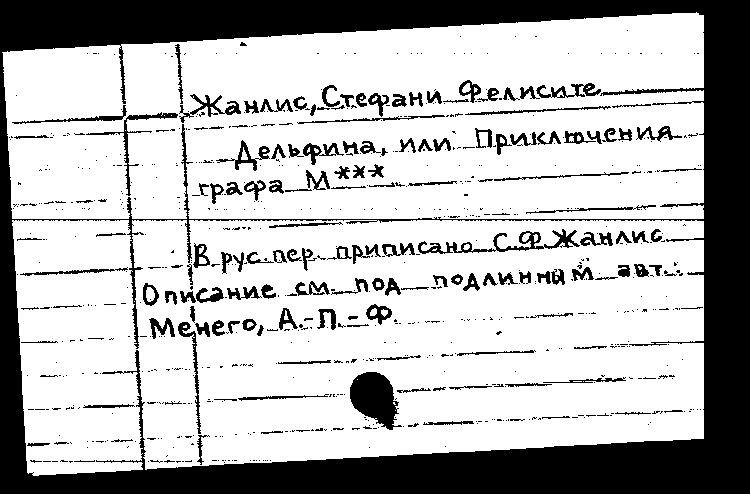 Жанлис, Стефани Фелисите
Дельфина, или Приключения
графа М***
В рус. пер. приписано С.Ф. Жанлис
Описание см. под подлинным авт.:
Менего, А.-П.-Ф.